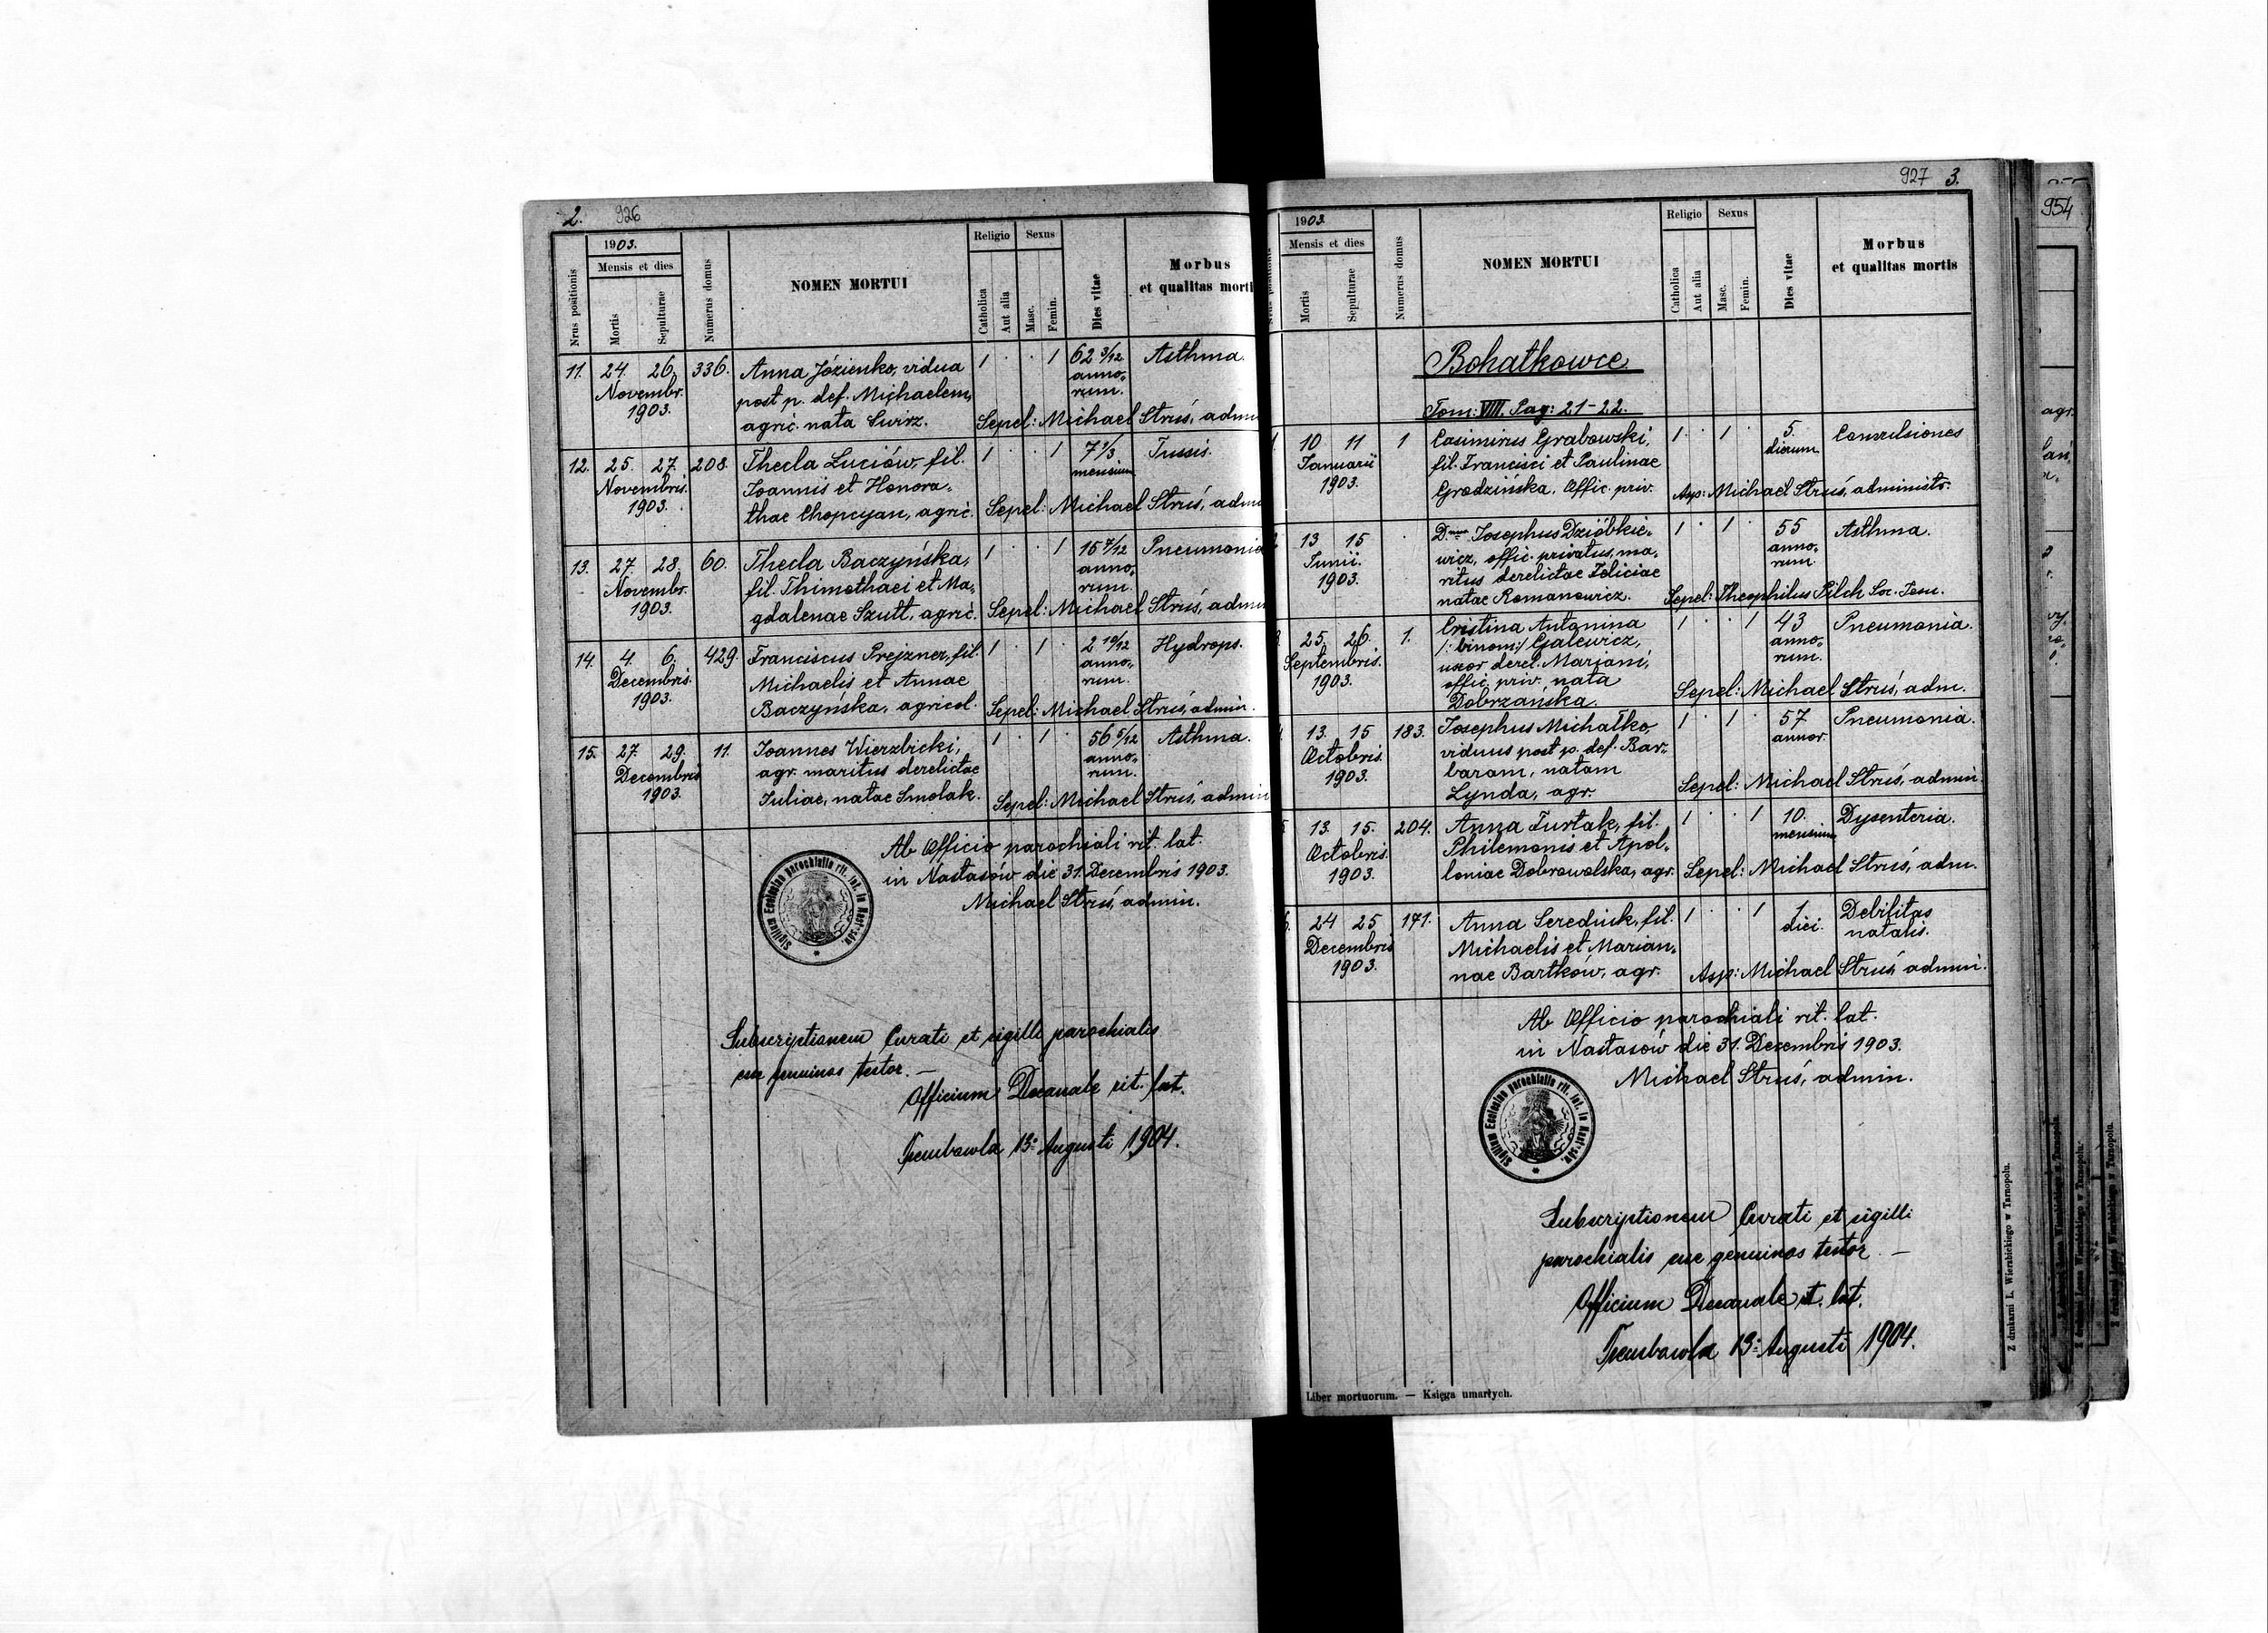 2. 926
1903.
Mensis et dies
Nrus positionis
Mortis
Sepulturae
Numerus domus
NOMEN MORTUI
Religio
Sexus
Catholica
Aut alia
Masc.
Femin.
Dies vitae
Morbus
et qualitas morti
11. 24. 26. 336. Anna Józienko, vidua 1 · · 1 62 3/12 Asthma.
Novembr. post p. def. Michaelem, anno-
1903. agric. nata Swirz. rum.
Sepel: Michael Struś, admi
12. 25. 27. 208. Thecla Luciów, fil. 1 · · 1 7 1/3 Tussis.
Novembris. Joannis et Honora- mensium
1903. thae Chopcyan, agric. Sepel: Michael Struś, adm
13. 27. 28. 60. Thecla Baczyńska, 1 · · 1 15 7/12 Pneumonia
Novembr. fil. Thimothaei et Ma- anno-
1903. gdalenae Szutt, agric. rum.
Sepel: Michael Struś, admi
14. 4. 6. 429. Franciscus Prejzner, fil. 1 · 1 · 2 10/12 Hydrops.
Decembris. Michaelis et Annae anno-
1903. Baczyńska, agricol. rum.
Sepel: Michael Struś, admin.
15. 27. 29. 11. Joannes Wierzbicki, 1 · 1 · 56 5/12 Asthma.
Decembris agr. maritus derelictae anno-
1903. Juliae, natae Smolak. rum.
Sepel: Michael Struś, admin
Ab Officio parochiali rit. lat.
in Nastasów die 31. Decembris 1903.
Michael Struś, admin.
Sigillum Ecclesiae parochialis rit. lat. in Nastasów.
Subscriptionem Curati et sigilli parochialis
esse genuinas testor. —
Officium Decanale rit. lat.
Trembowla 13. Augusti 1904.
927 3.
1903.
Mensis et dies
Mortis
Sepulturae
Numerus domus
NOMEN MORTUI
Religio
Sexus
Catholica
Aut alia
Masc.
Femin.
Dies vitae
Morbus
et qualitas mortis
Bohatkowce.
Tom: VIII. Pag: 21-22.
10 11 1 Casimirus Grabowski, 1 · 1 · 5. Convulsiones
Januarii fil. Francisci et Paulinae dierum.
1903. Grodzińska. Offic. priv. Asp: Michael Struś, administr.
13 15 · Josephus Dzióbkie- 1 · 1 · 55 Asthma.
Junii. wicz, offic. privatus, ma- anno-
1903. ritus derelictae Feliciae rum.
natae Romanowicz. Sepel: Theophilus Pilch Soc. Jesu.
25. 26. 1. Cristina Antonina 1 · · 1 43 Pneumonia.
Septembris. /: binom:/ Galewicz, anno-
1903. uxor derel. Mariani, rum.
offic. priv. nata
Dobrzańska. Sepel: Michael Struś, adm.
13. 15 183. Josephus Michałko, 1 · 1 · 57 Pneumonia.
Octobris. viduus post p. def. Bar- annor.
1903. baram, natam
Lynda, agr. Sepel: Michael Struś, admin.
13. 15. 204. Anna Turtak, fil. 1 · · 1 10. Dysenteria.
Octobris. Philemonis et Apol- mensium
1903. loniae Dobrowolska, agr. Sepel: Michael Struś, adm.
24 25 171. Anna Serediuk, fil. 1 · · 1 1 Debilitas
Decembris Michaelis et Marian- diei. natalis.
1903. nae Bartków, agr. Asp: Michael Struś, admin.
Ab Officio parochiali rit. lat.
in Nastasów die 31. Decembris 1903.
Michael Struś, admin.
Sigillum Ecclesiae parochialis rit. lat. in Nastasów.
Subscriptionem Curati et sigilli
parochialis esse genuinas testor —
Officium Decanale rit. lat.
Trembowla 13. Augusti 1904.
Liber mortuorum. — Księga umarłych.
Z drukarni L. Wierzbickiego w Tarnopolu.
954
agr.